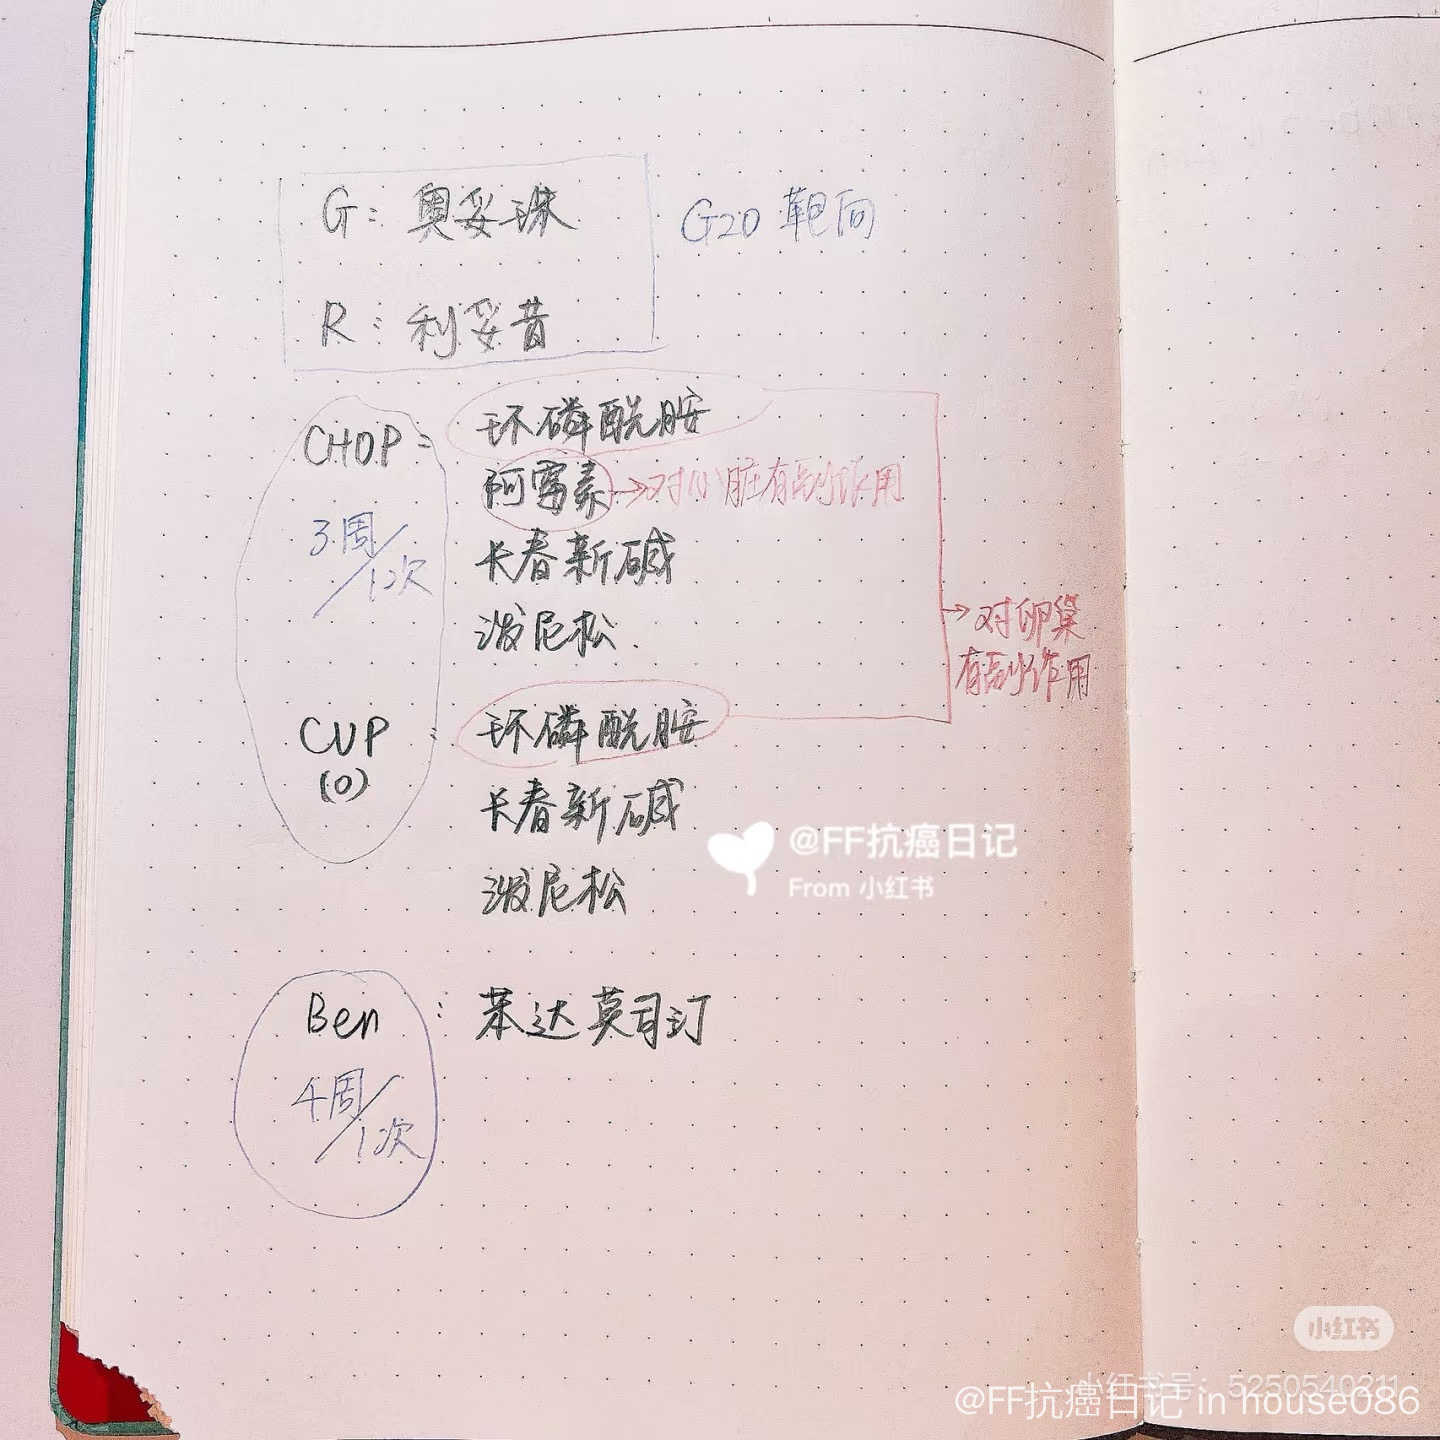 G: 奥妥珠
G20 靶向
R: 利妥昔
CHOP: 环磷酰胺
阿霉素→对心脏有副作用
3周/1次
长春新碱
泼尼松
→对卵巢
有副作用
CVP: 环磷酰胺
(O)
长春新碱
泼尼松
@FF抗癌日记
From 小红书
Ben: 苯达莫司汀
4周/1次
小红书
小红书号: 5250540211
@FF抗癌日记 in house086